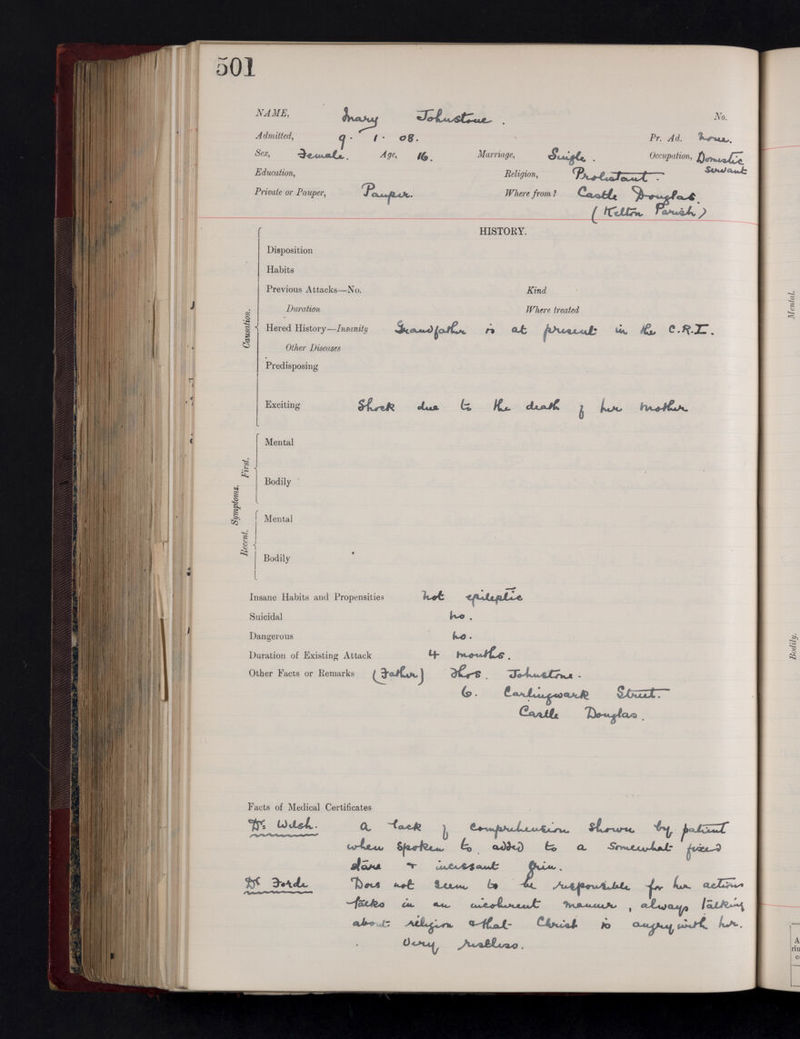 501
NAME, Mary Johnstone. No.
Admitted, 9 · 1 · 08. Pr. Ad. None.
Sex, Female. Age, 16. Marriage, Single. Occupation, Domestic Servant
Education, Religion, Protestant.
Private or Pauper, Pauper. Where from? Castle Douglas.
(Kelton Parish)
HISTORY.
Causation.
Disposition
Habits
Previous Attacks—No. Kind
Duration Where treated
Hered History—Insanity Grandfather is at present in the C.R.I.
Other Diseases
Predisposing
Exciting Shock due to the death of her mother
Symptoms.
First.
Mental
Bodily
Recent.
Mental
Bodily
Insane Habits and Propensities not epileptic
Suicidal no.
Dangerous no.
Duration of Existing Attack 4 months.
Other Facts or Remarks (Father) Thos. Johnstone.
6. Carlingwark Street.
Castle Douglas.
Facts of Medical Certificates
Dr. a lack of comprehension shown by patient
when spoken to, added to a somewhat fixed
stare & incessant grin.
Dr Forde Does not seem to be responsible for her actions
talks in an incoherent manner, always talking
about religion & that Christ is angry with her.
Very restless.
Mental.
Bodily.